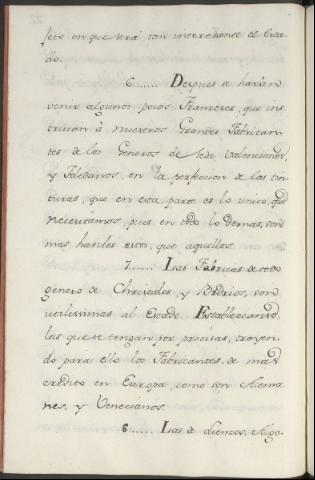 jeto en que será con increíbene el Esta-
do.
6...... Despues se harán
venir algunos pocos Franceses, que ins-
truian à nuestros Grandes Fabrican-
tes de los Generos de seda Valencianos,
y Toledanos, en la perfeccion de las tin-
turas, que en esta parte es lo unico, que
necesitamos, pues en todo lo demas, son
mas haviles estos, que aquellos.
7...... Las Fabricas de todo
genero de Christales, y Bidrios, son
utilissimas al Estado. Establezcanse
las que se tengan por precisas, trayen-
do para ello los Fabricantes de mas
credito en Europa, como son Alema-
nes, y Venecianos.
8...... Las de Lienzos, Algo-